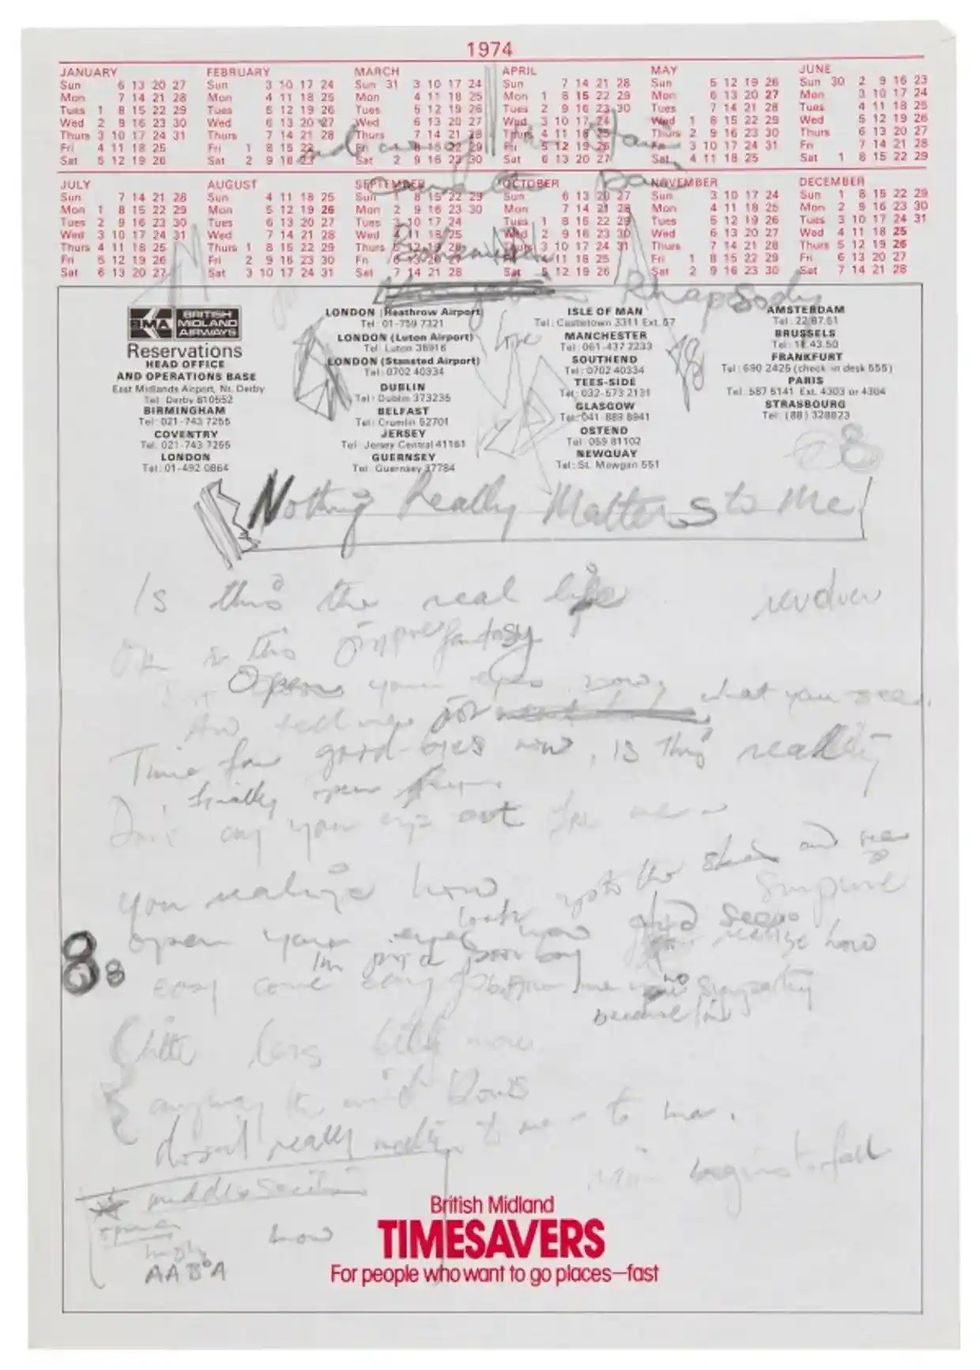 1974
JANUARY
Sun 6 13 20 27
Mon 7 14 21 28
Tues 1 8 15 22 29
Wed 2 9 16 23 30
Thurs 3 10 17 24 31
Fri 4 11 18 25
Sat 5 12 19 26
FEBRUARY
Sun 3 10 17 24
Mon 4 11 18 25
Tues 5 12 19 26
Wed 6 13 20 27
Thurs 7 14 21 28
Fri 1 8 15 22
Sat 2 9 16 23
MARCH
Sun 31 3 10 17 24
Mon 4 11 18 25
Tues 5 12 19 26
Wed 6 13 20 27
Thurs 7 14 21 28
Fri 1 8 15 22 29
Sat 2 9 16 23 30
APRIL
Sun 7 14 21 28
Mon 1 8 15 22 29
Tues 2 9 16 23 30
Wed 3 10 17 24
Thurs 4 11 18 25
Fri 5 12 19 26
Sat 6 13 20 27
MAY
Sun 5 12 19 26
Mon 6 13 20 27
Tues 7 14 21 28
Wed 1 8 15 22 29
Thurs 2 9 16 23 30
Fri 3 10 17 24 31
Sat 4 11 18 25
JUNE
Sun 30 2 9 16 23
Mon 3 10 17 24
Tues 4 11 18 25
Wed 5 12 19 26
Thurs 6 13 20 27
Fri 7 14 21 28
Sat 1 8 15 22 29
JULY
Sun 7 14 21 28
Mon 1 8 15 22 29
Tues 2 9 16 23 30
Wed 3 10 17 24 31
Thurs 4 11 18 25
Fri 5 12 19 26
Sat 6 13 20 27
AUGUST
Sun 4 11 18 25
Mon 5 12 19 26
Tues 6 13 20 27
Wed 7 14 21 28
Thurs 1 8 15 22 29
Fri 2 9 16 23 30
Sat 3 10 17 24 31
SEPTEMBER
Sun 1 8 15 22 29
Mon 2 9 16 23 30
Tues 3 10 17 24
Wed 4 11 18 25
Thurs 5 12 19 26
Fri 6 13 20 27
Sat 7 14 21 28
OCTOBER
Sun 6 13 20 27
Mon 7 14 21 28
Tues 1 8 15 22 29
Wed 2 9 16 23 30
Thurs 3 10 17 24 31
Fri 4 11 18 25
Sat 5 12 19 26
NOVEMBER
Sun 3 10 17 24
Mon 4 11 18 25
Tues 5 12 19 26
Wed 6 13 20 27
Thurs 7 14 21 28
Fri 1 8 15 22 29
Sat 2 9 16 23 30
DECEMBER
Sun 1 8 15 22 29
Mon 2 9 16 23 30
Tues 3 10 17 24 31
Wed 4 11 18 25
Thurs 5 12 19 26
Fri 6 13 20 27
Sat 7 14 21 28
Bohemian
Rhapsody
BMA BRITISH MIDLAND AIRWAYS
Reservations
HEAD OFFICE
AND OPERATIONS BASE
East Midlands Airport, Nr. Derby
Tel: Derby 810552
BIRMINGHAM
Tel: 021-743 7255
COVENTRY
Tel: 021-743 7255
LONDON
Tel: 01-492 0864
LONDON (Heathrow Airport)
Tel: 01-759 7321
LONDON (Luton Airport)
Tel: Luton 36916
LONDON (Stansted Airport)
Tel: 0702 40334
DUBLIN
Tel: Dublin 373235
BELFAST
Tel: Crumlin 52701
JERSEY
Tel: Jersey Central 41161
GUERNSEY
Tel: Guernsey 37784
ISLE OF MAN
Tel: Castletown 3311 Ext. 57
MANCHESTER
Tel: 061-437 2233
SOUTHEND
Tel: 0702 40334
TEES-SIDE
Tel: 032-573 2131
GLASGOW
Tel: 041-889 8941
OSTEND
Tel: 059 81102
NEWQUAY
Tel: St. Mawgan 551
AMSTERDAM
Tel: 22.87.61
BRUSSELS
Tel: 18.43.50
FRANKFURT
Tel: 690 2425 (check in desk 555)
PARIS
Tel: 587 5141 Ext. 4303 or 4304
STRASBOURG
Tel: (88) 328823
8
Nothing Really Matters to Me
Is this the real life
is this fantasy
Open your eyes now, what you see
And tell me
Time for good-byes now, is this reality
finally open
Don't cry your eyes out for me
you realize how up to the skies and see
look
open your eyes now realise how
8 8
I'm just a poor boy
easy come easy go no sympathy
because I'm
little less little more
anyway the wind blows
doesn't really matter to me - to me.
begins to fall
middle section
how
AABA
British Midland
TIMESAVERS
For people who want to go places—fast